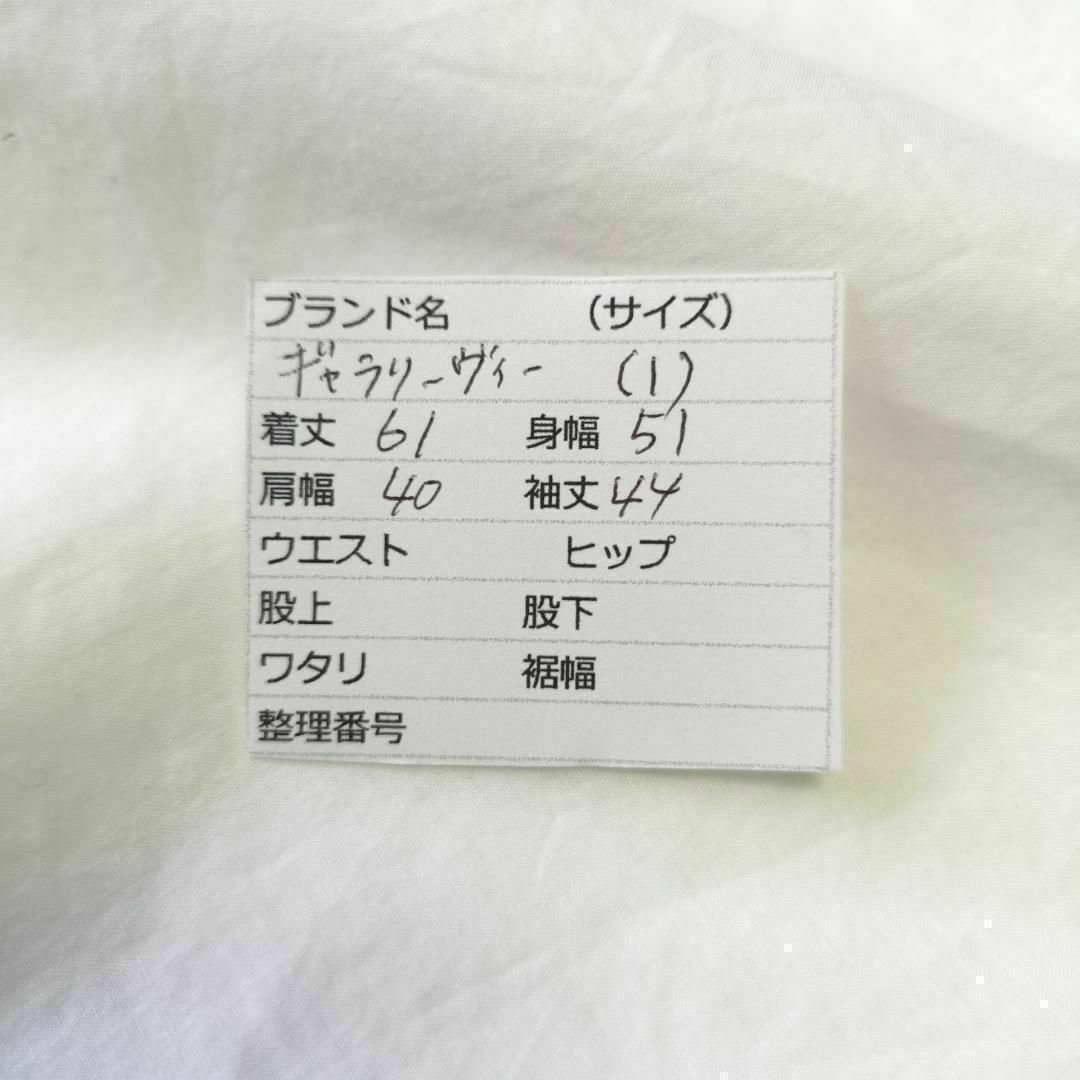 ブランド名 （サイズ）
ギャラリーヴィー (1)
着丈 61 身幅 51
肩幅 40 袖丈 44
ウエスト ヒップ
股上 股下
ワタリ 裾幅
整理番号